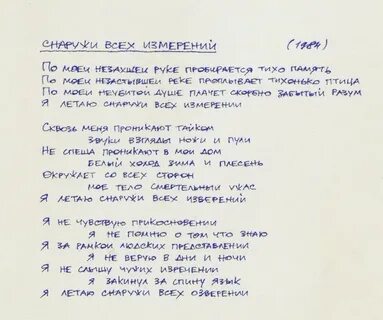 СНАРУЖИ ВСЕХ ИЗМЕРЕНИЙ (1984)
По моей незажшей руке пробирается тихо память
По моей незастывшей реке проплывает тихонько птица
По моей неубитой душе плачет скорбно забытый разум
Я летаю снаружи всех измерений
Сквозь меня проникают тайком
Звуки взгляды ножи и пули
Не спеша проникают в мой дом
Белый холод зима и плесень
Окружает со всех сторон
Мое тело смертельный ужас
Я летаю снаружи всех изверений
Я не чувствую прикосновений
Я не помню о том что знаю
Я за рамкой людских представлений
Я не верую в дни и ночи
Я не слышу чужих изречений
Я закинул за спину язык
Я летаю снаружи всех озверений